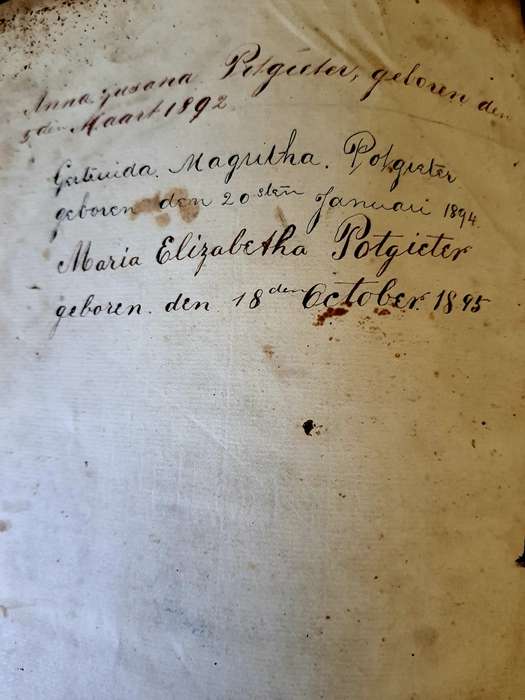 Anna Susana Potgieter, geboren den
5den Maart 1892
Gertruida. Magritha. Potgieter
geboren den 20sten Januari 1894.
Maria Elizabetha Potgieter
geboren. den 18den October. 1895